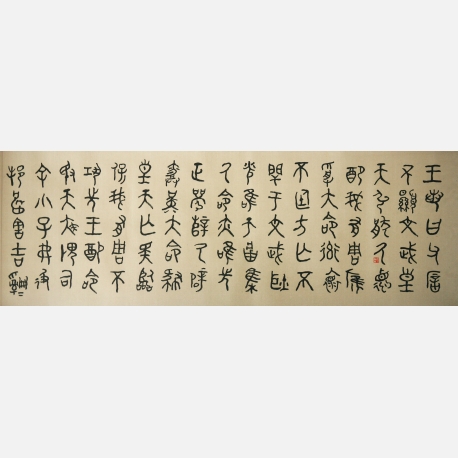 王若曰父㕑
不顯文武皇
天引猒厥德
配我有周膺
受大命率懷
不廷方亡不
閈于文武耿
光唯天將集
厥命亦唯先
正襄辥厥辟
勞堇大命肆
皇天亡斁臨
保我有周不
巩先王配命
敃天疾畏司
余小子弗彶
邦將害吉